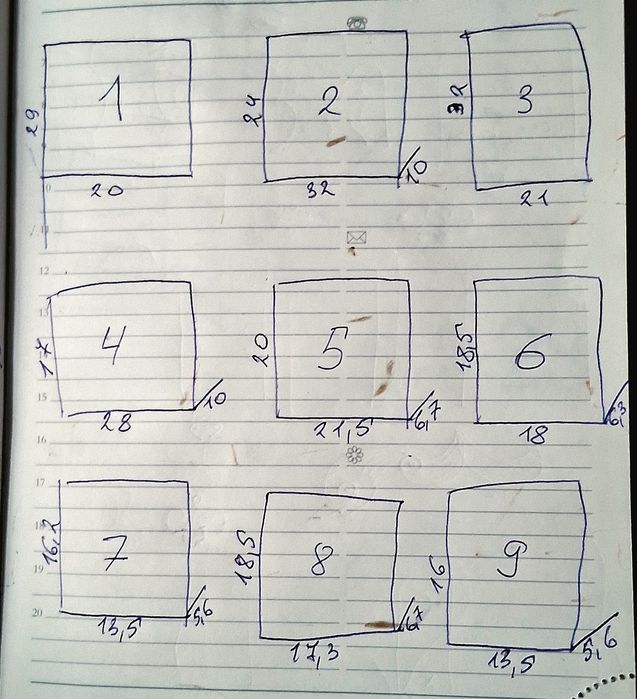 1 2 3
29 24 32
20 32 10 21
11
12
13
4 5 6
17 20 18,5
15
28 10 21,5 6,7 18 6,3
16
17
18
7 8 9
16,2 18,5 16
19
20
13,5 5,6 17,3 6,7 13,5 5,6